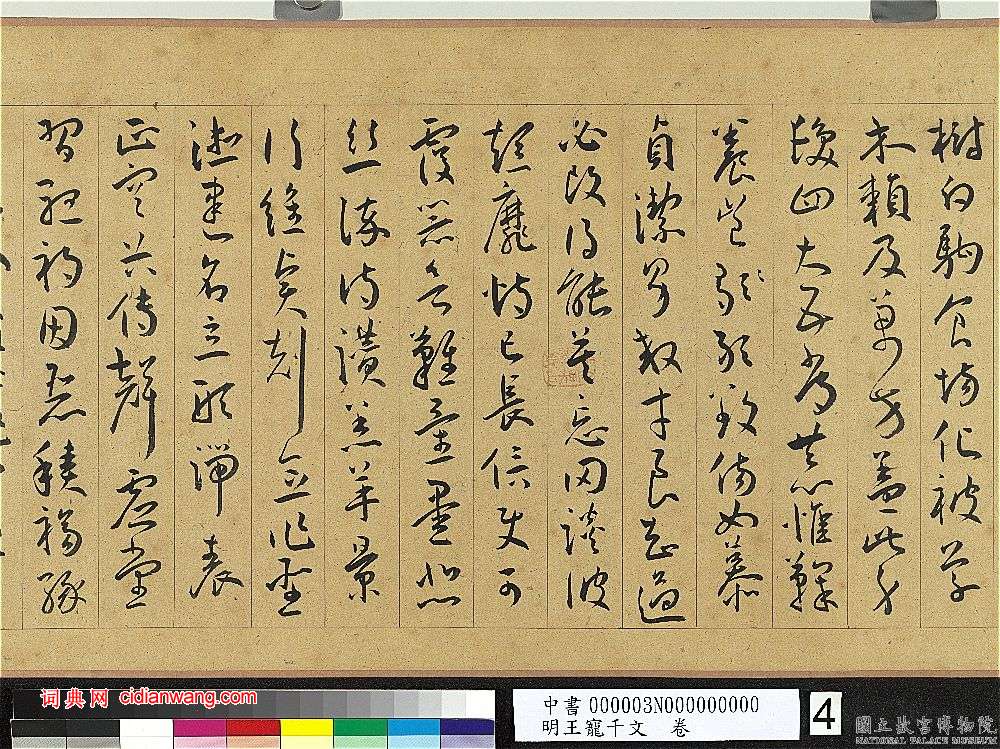 樹白駒食場化被草
木賴及萬方蓋此身
髮四大五常恭惟鞠
養豈敢毀傷女慕
貞潔男效才良知過
必改得能莫忘罔談彼
短靡恃己長信使可
覆器欲難量墨悲
絲染詩讚羔羊景
行維賢剋念作聖
德建名立形端表
正空谷傳聲虛堂
習聽禍因惡積福緣
词典网 cidianwang.com
中書000003N000000000
明王寵千文 卷
4
國立故宮博物院
NATIONAL PALACE MUSEUM